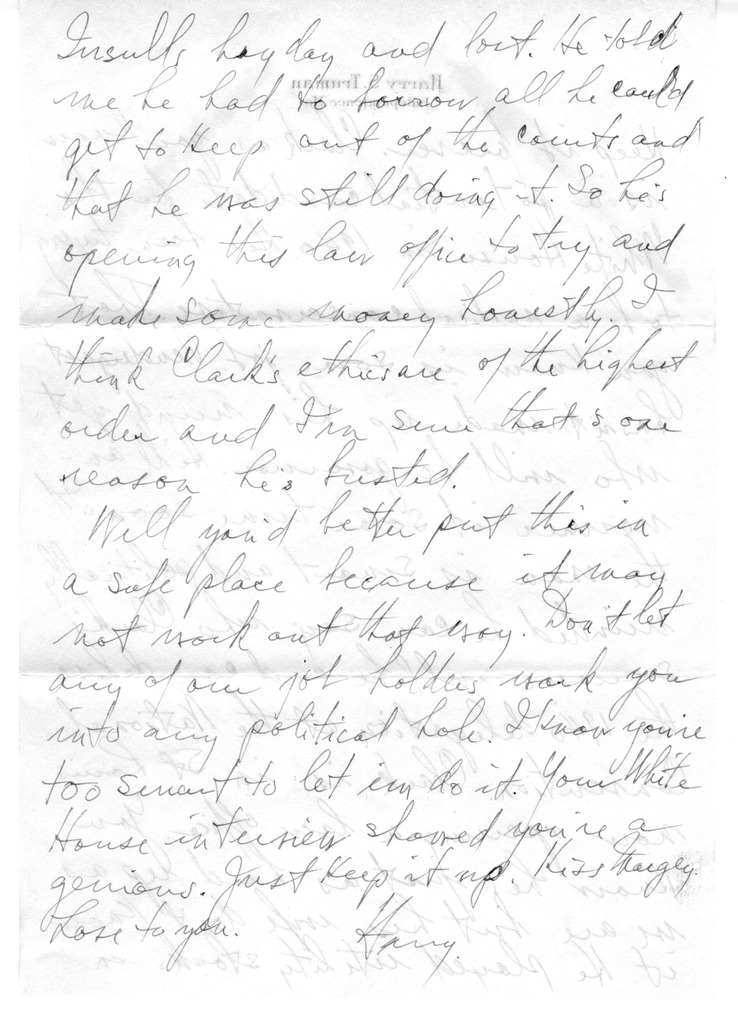 Insulls hayday and lost. He told
me he had to borrow all he could
get to keep out of the courts and
that he was still doing it. So he's
opening this law office to try and
make some money honestly. I
think Clark's ethics are of the highest
order and I'm sure that's one
reason he's busted.
Well you'd better put this in
a safe place because it may
not work out that way. Don't let
any of our job holders work you
into any political hole. I know you're
too smart to let em do it. Your White
House interview showed you're a
genious. Just keep it up. Kiss Margey.
Love to you. Harry.
Harry S. Truman